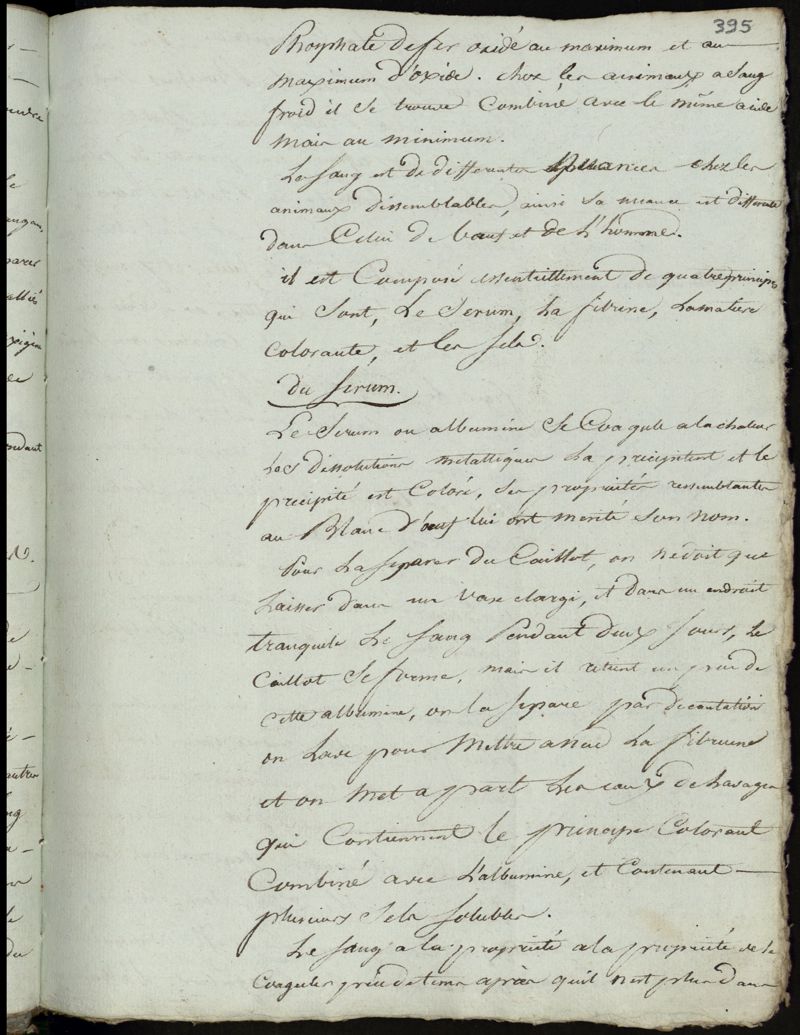 395
Phosphate de fer oxidé au maximum et au
maximum d'oxide. chez les animaux a Sang
froid il Se trouve Combiné avec le même acide
mais au minimum.
Le Sang est de differentes nuances chez les
animaux dissemblables, ainsi Sa nuance est differente
dans Celui de bœuf et de L'homme.
il est Composé essentiellement de quatre principes
qui Sont, Le Serum, La fibrine, La matiere
Colorante, et les Sels.
Du Serum.
Le Serum ou albumine Se Coagule a la chaleur
Les dissolutions metalliques La precipitent et le
precipité est Coloré, Ses proprietés ressemblantes
au Blanc d'œuf lui ont merité Son nom.
Pour La Separer du Caillot, on ne doit que
Laisser dans un Vase elargi, et dans un endroit
tranquile Le Sang Pendant deux Jours, Le
Caillot Se forme, mais il retient un peu de
cette albumine, on la Separe par decantation
on Lave pour Mettre a nud La fibrine
et on Met a part Les eaux de Lavages
qui Contiennent le principe Colorant
Combiné avec L'albumine, et Contenant
plusieurs Sels Solubles.
Le Sang a la propriété a la propriété de Se
Coaguler peu de tems après qu'il n'est plus dans